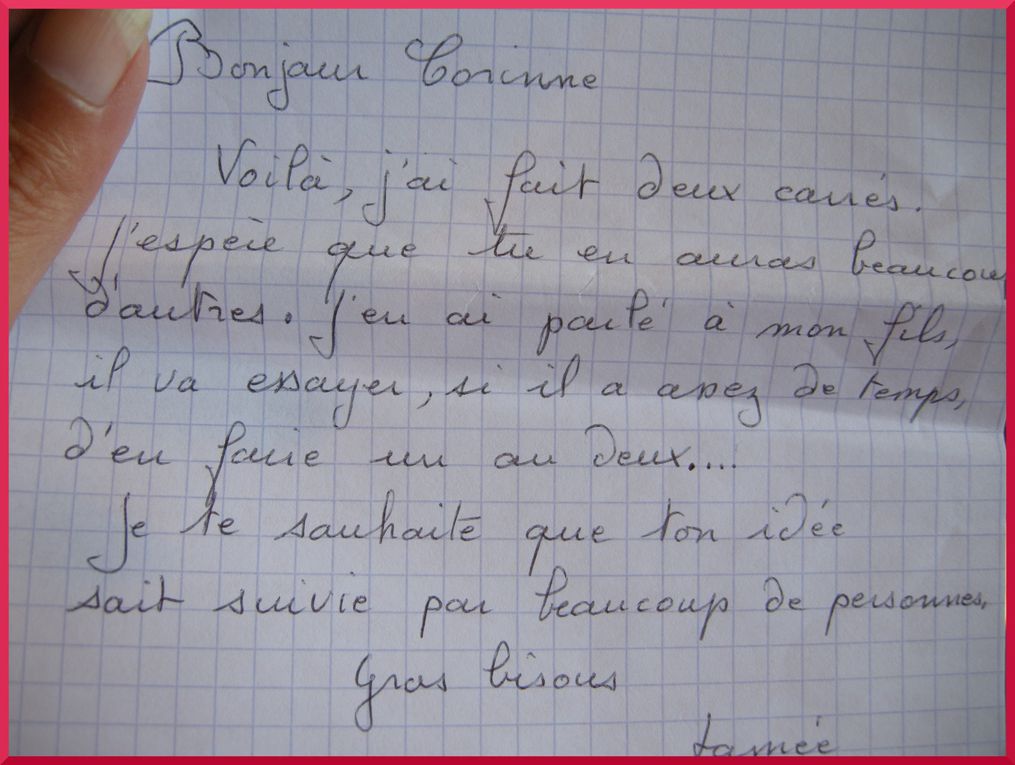 Bonjour Corinne
Voilà, j'ai fait deux carrés.
J'espère que tu en auras beaucoup
d'autres. J'en ai parlé à mon fils,
il va essayer, si il a assez de temps,
d'en faire un ou deux....
Je te souhaite que ton idée
soit suivie par beaucoup de personnes.
Gros bisous